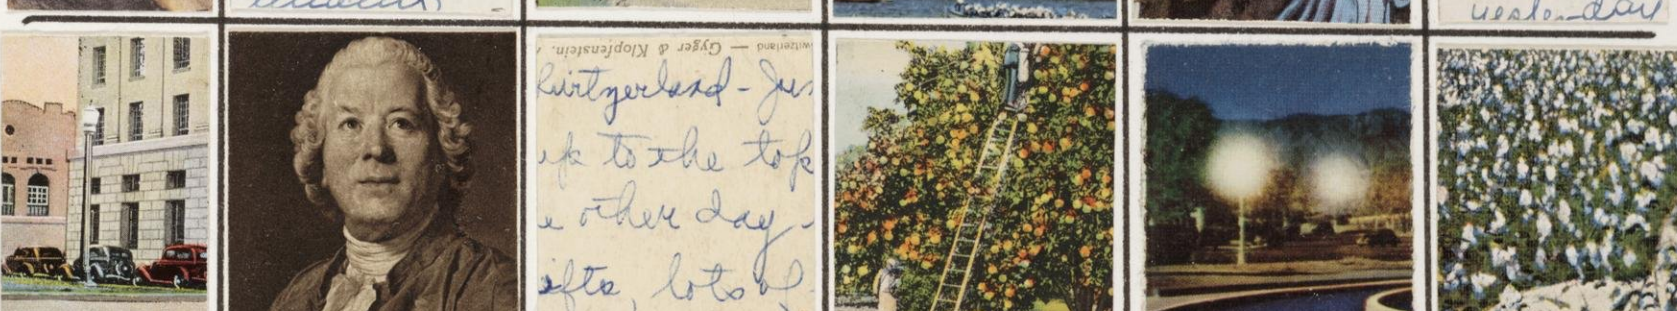 yesterday
witzerland — Gyger & Klopfenstein,
witzerland - Jus
up to the top
e other day -
ifts, lots of